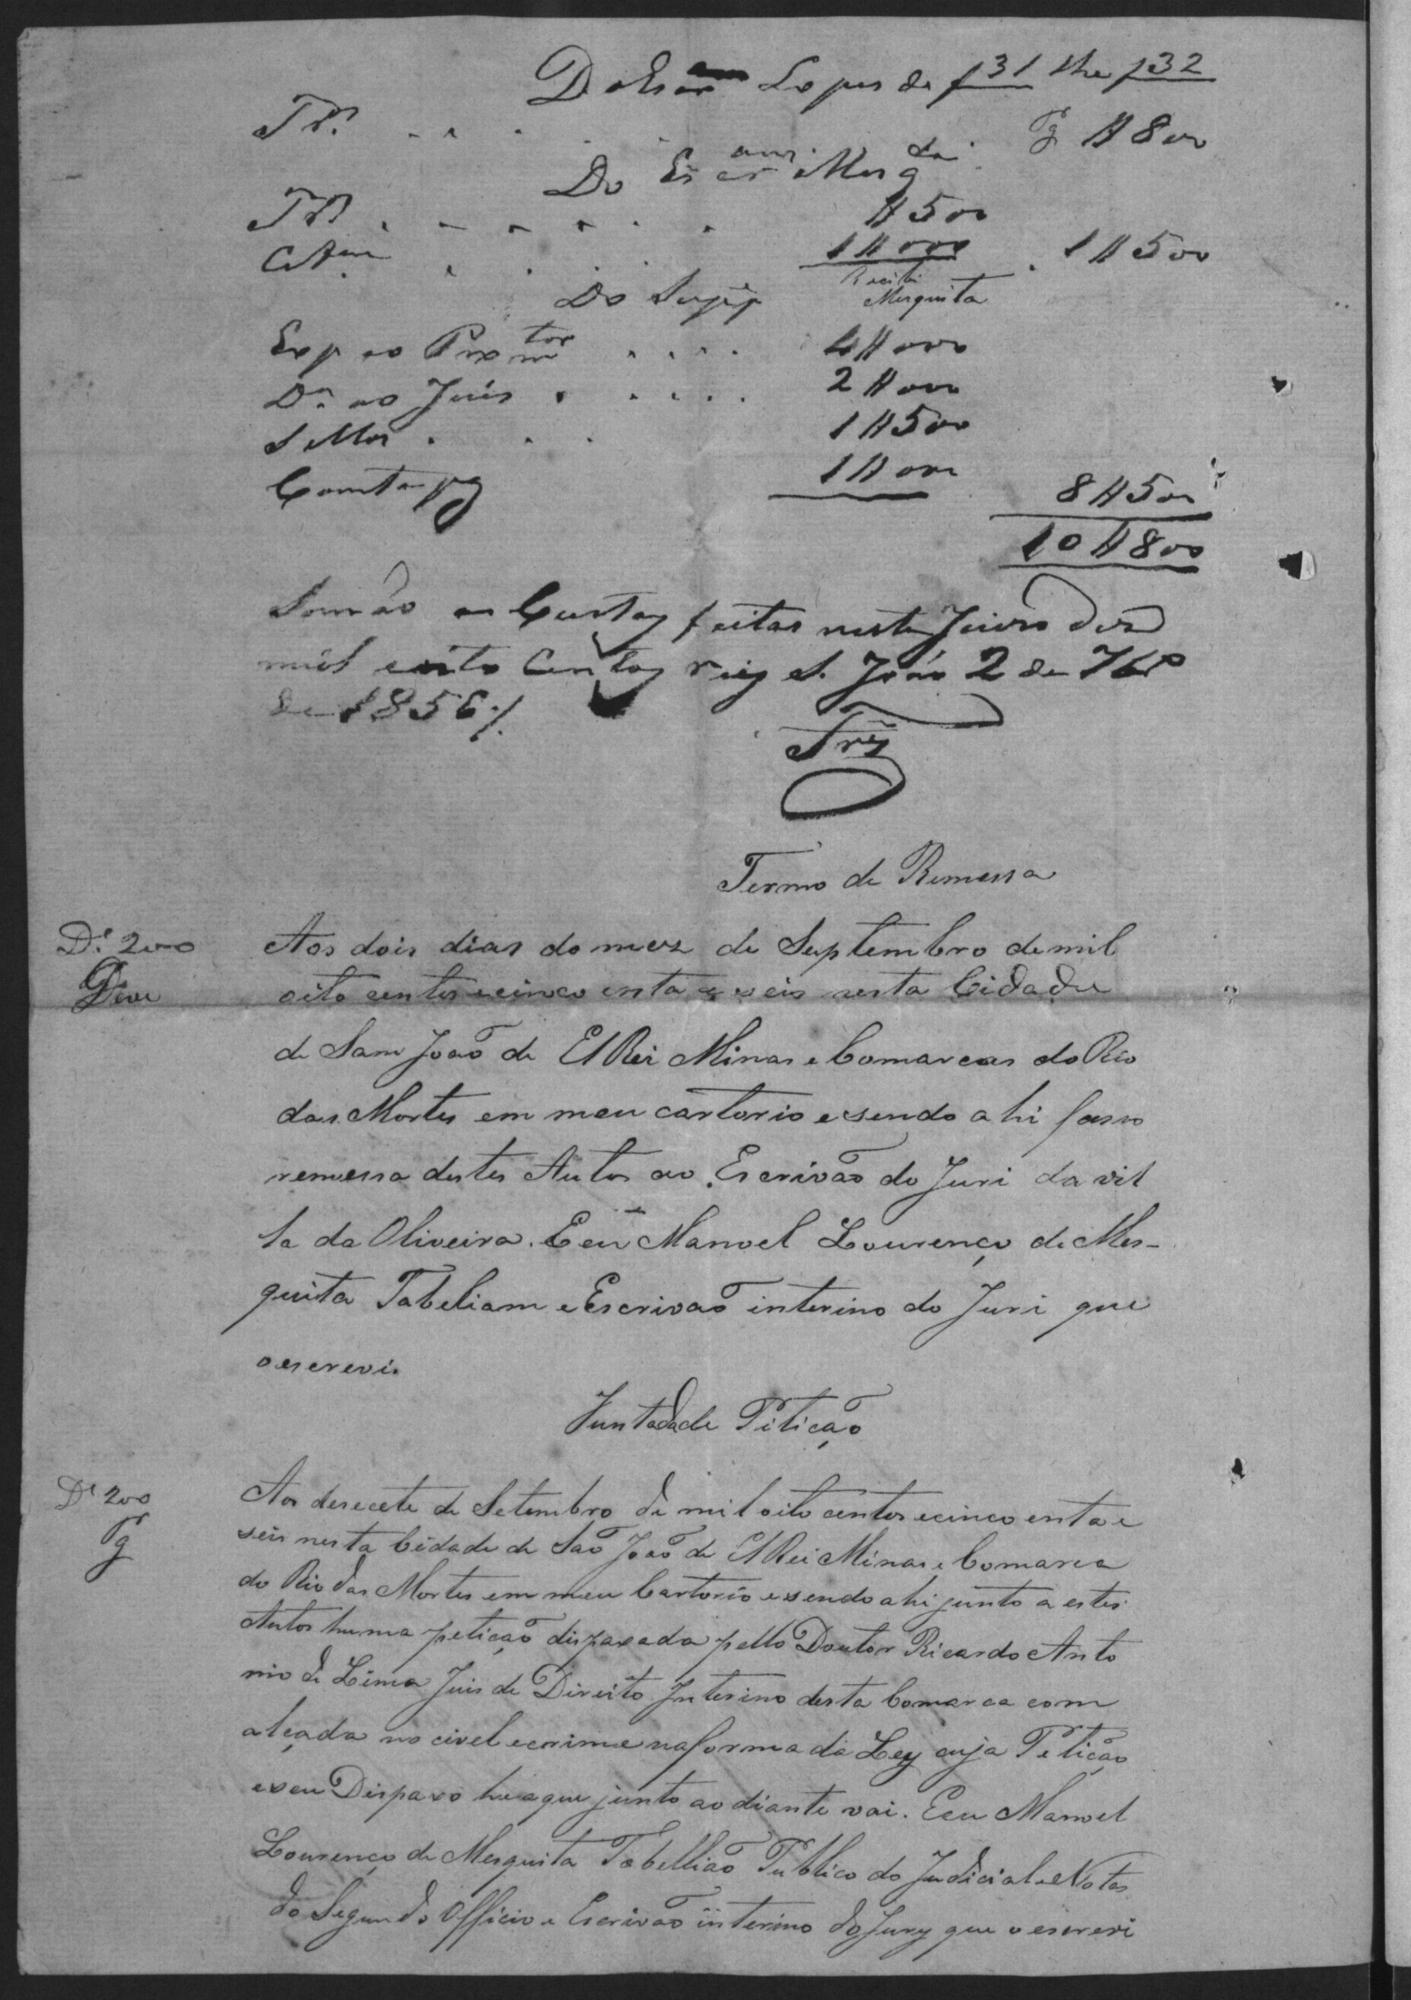 Do Escr.am Lopes de f 31 the f 32
Tr. . . . . Pg H 800
Do Escram Mesq.da
Tr.º . . . . . . H 500
1 H 000 . 1 H 500
Recibi
Mesquita
Do
Exp ao Promtor . . . . 4 H 000
D.º ao Juis . . . . . 2 H 000
Sellos . . . 1 H 500
Conta pg 1 H 000
8 H 500
10 H 800
Somão as Custas feitas neste Juizo dez
mil e oito Centos reis S. João 2 de 7bro
de 1856 /.
Termo de Remessa
D.º 200
Aos dois dias do mez de Septembro de mil
oito centos e cinco enta e seis nesta Cidade
de Sam João de El Rei Minas e Comarcas do Rio
das Mortes em meu cartorio e sendo ahi fasso
remessa destes Autos ao Escrivão do Juri da vil
la da Oliveira. E eu Manoel Lourenço de Mes-
quita Tabeliam e Escrivão interino do Juri que
o escrevi.
Juntada de Petição
D.º 200
Pg
Aos desecete de Setembro de mil oito centos e cinco enta e
seis nesta Cidade de São João de El Rei Minas e Comarca
do Rio das Mortes em meu Cartorio e sendo ahi junto a estes
Autos huma petição dispaxada pello Doutor Ricardo Anto
nio de Lima Juis de Direito Interino desta Comarca com
alçada no civel e crime na forma da Ley cuja Petição
e seu Dispaxo he a que junto ao diante vai. E eu Manoel
Lourenço de Mesquita Tabellião Publico do Judicial e Notas
do Segundo Officio e Escrivão interino do Jury que o escrevi